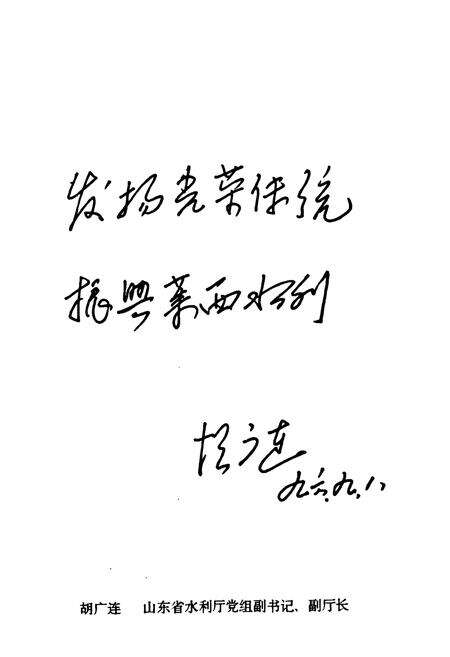 发扬光荣传统
振興莱西水利
胡广连
九六.九.八
胡广连 山东省水利厅党组副书记、副厅长